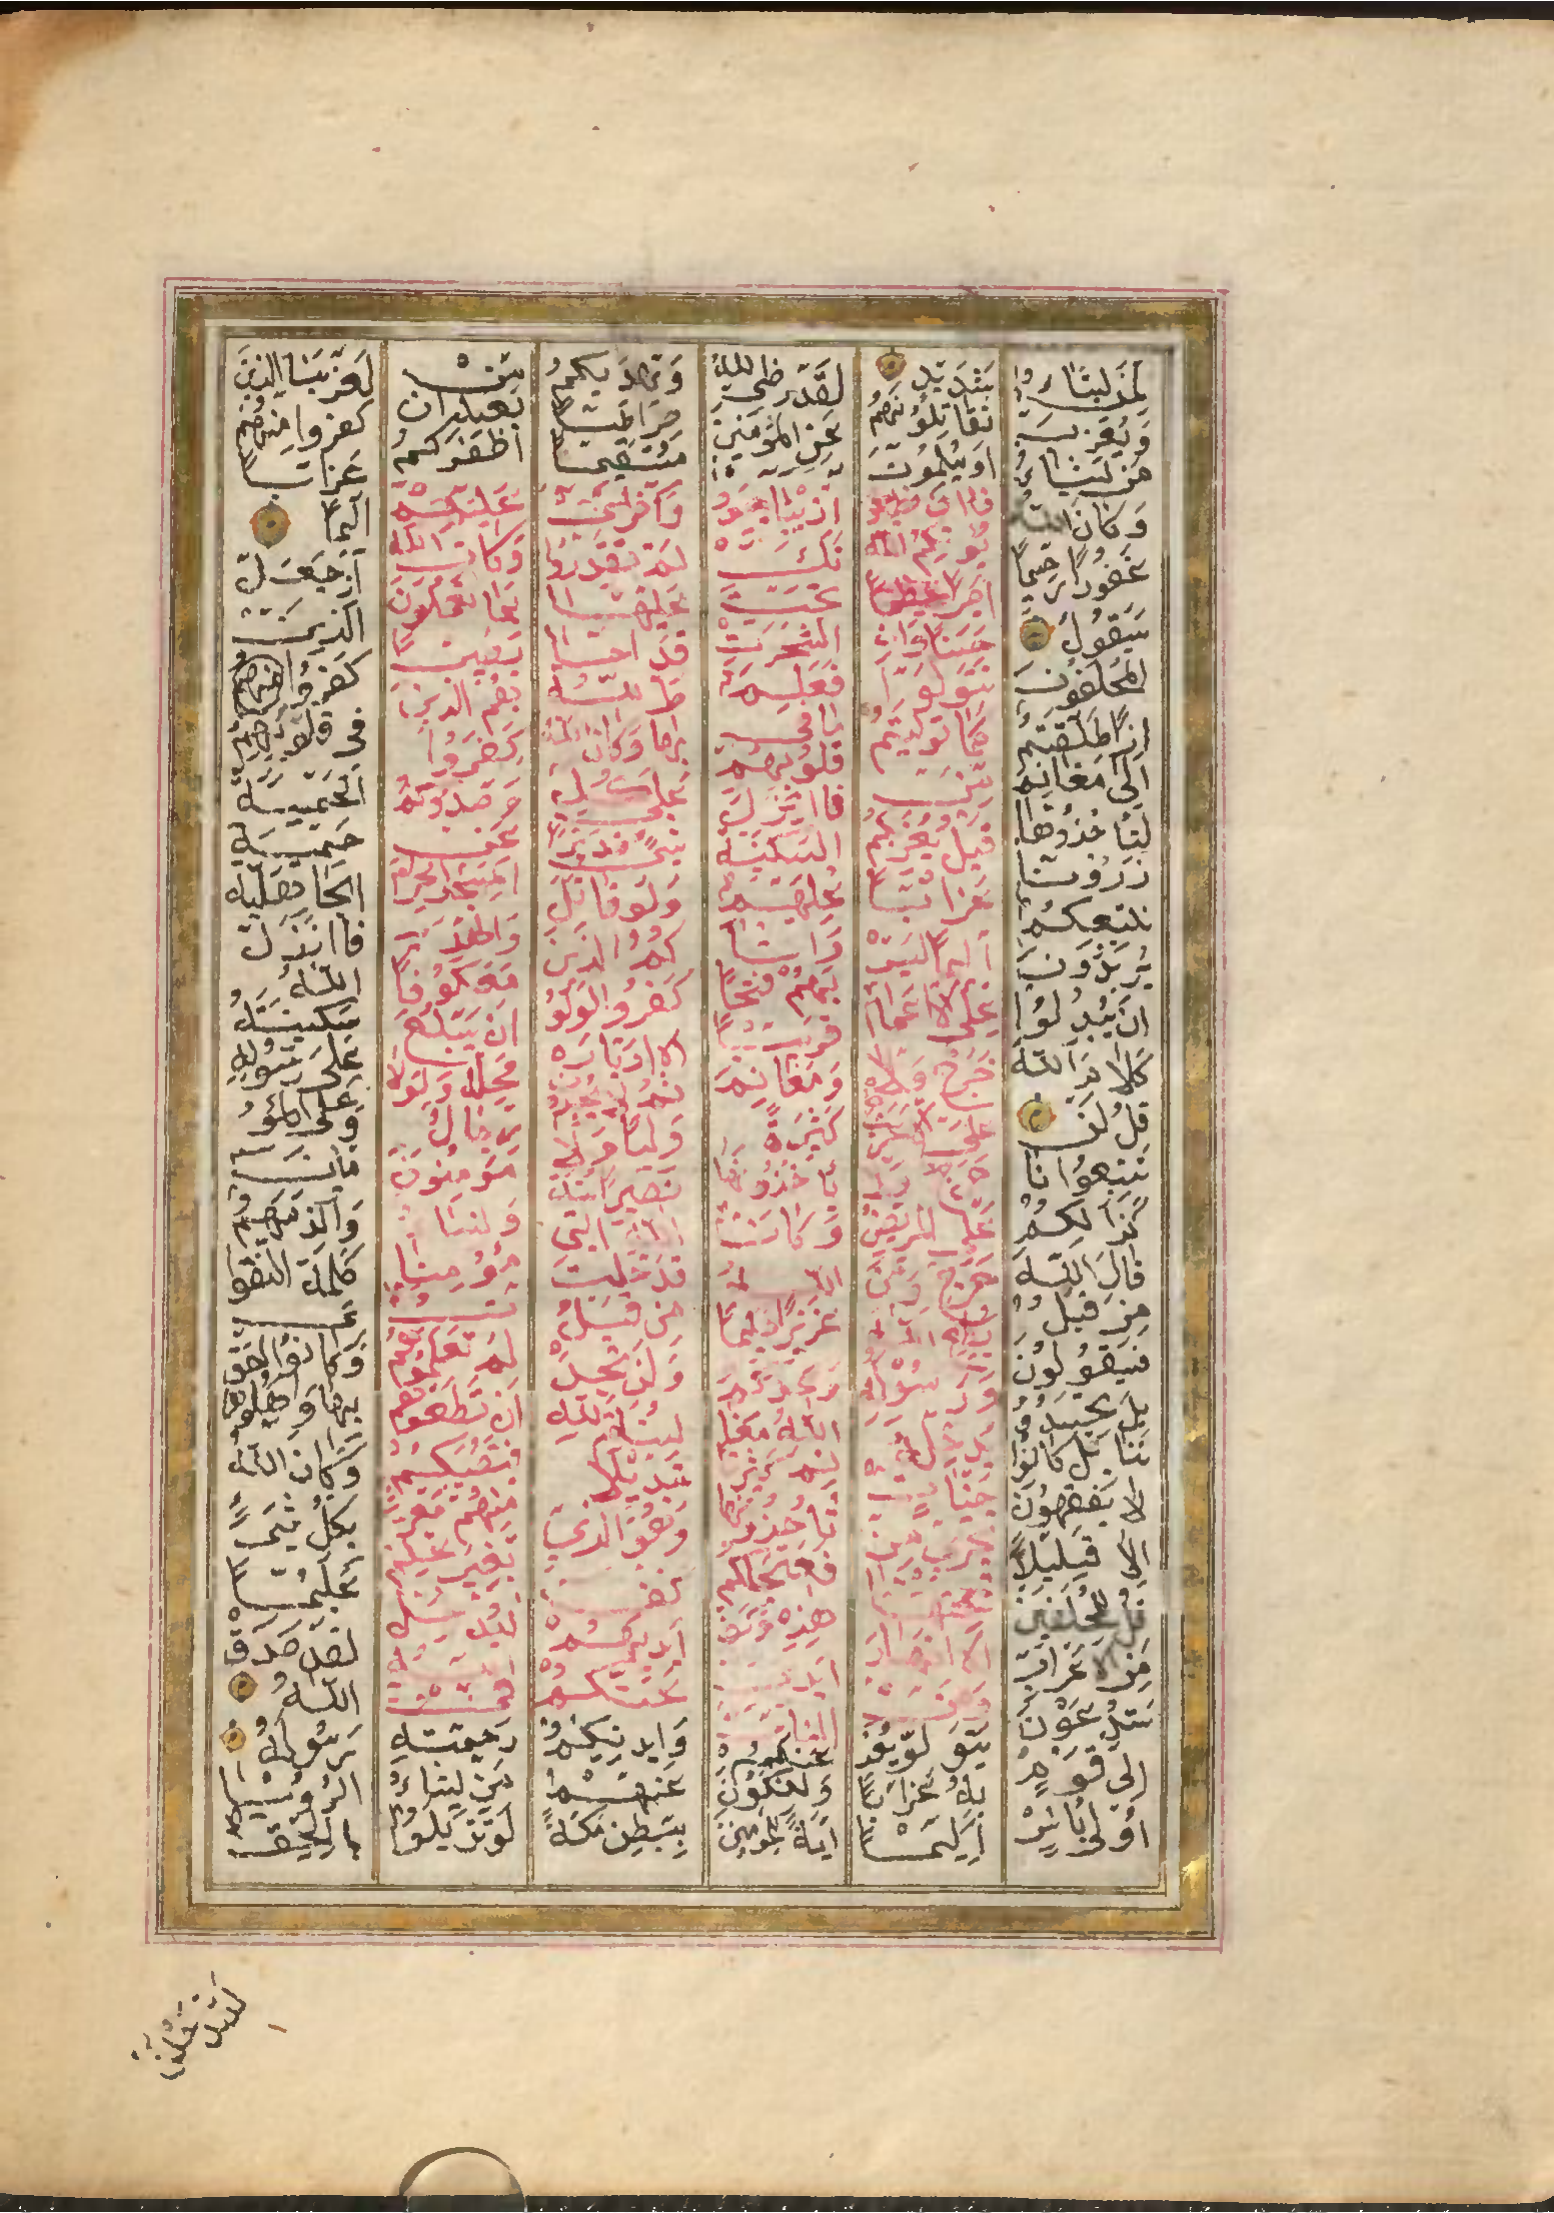 لمن يشاء
ويعذب
من يشاء
وكان الله
غفورا رحيما
سيقول
المخلفون
اذا انطلقتم
الى مغانم
لتاخذوها
ذرونا
نتبعكم
يريدون
ان يبدلوا
كلام الله
قل لن
تتبعونا
كذالكم
قال الله
من قبل
فسيقولون
بل تحسدو
ننا بل كانوا
لا يفقهون
الا قليلا
قل للمخلفين
من الاعراب
ستدعون
الى قوم
اولى باس
شديد
تقاتلونهم
او يسلمون
فان تطيعو
يوتكم الله
اجرا
حسنا وان
تتولوا
كما توليتم
من
قبل يعذبكم
عذابا
اليما ليس
على الاعمى
حرج ولا
على
حرج
الله
ورسوله
يدخله
جنات
تجرى من
تحتها
الانهار
ومن
يتول يعذ
به عذابا
اليما
لقد رضى الله
عن المؤمنين
اذ يبايعو
نك
تحت
الشجرت
فعلم
ما فى
قلوبهم
فانزل
السكينة
عليهم
واثا
بهم فتحا
قريبا
ومغانم
كثيرة
ياخذونها
وكانت
الله
عزيزا حكيما
وعدكم
الله مغا
نم كثيرة
تاخذونها
فعجل لكم
هذه وكف
ايدى
الناس
عنكم
ولتكون
اية للمومنين
ويهديكم
صراطا
مستقيما
واخرى
لم تقدروا
عليها
قد احا
ط الله
بها وكان الله
على كل
شىء قديرا
ولو قاتل
كم الذين
كفروا لولو
الادباره
ثم لا يجدون
وليا ولا
نصيرا سنة
الله التى
قد خلت
من قبل
ولن تجد
لسنة الله
تبديلا
وهو الذى
كف
ايديكم
عنكم
وايديكم
عنهم
ببطن مكة
من
بعد ان
اظفركم
عليهم
وكان الله
بما تعملون
بصيرا
هم الذين
كفروا
وصدوكم
عن
المسجد الحرام
والهدى
معكوفا
ان يبلغ
محله ولولا
رجال
مومنون
ونسا
مؤمنا
ت
لم تعلموهم
ان تطؤهم
فتصيبكم
منهم معرة
بغير علم
ليدخل
الله
فى
رحمته
من يشاء
لو تزيلوا
لعذبنا الذين
كفروا منهم
عذابا
اليما
اذ جعل
الذين
كفروا
فى قلوبهم
الحمية
حمية
الجاهلية
فانزل
الله
سكينته
على رسوله
وعلى المؤ
منين
والزمهم
كلمة التقو
ى
وكانوا احق
بها واهلها
وكان الله
بكل شىء
عليما
لقد صدق
الله
رسوله
الرويا
بالحق
لتدخلن